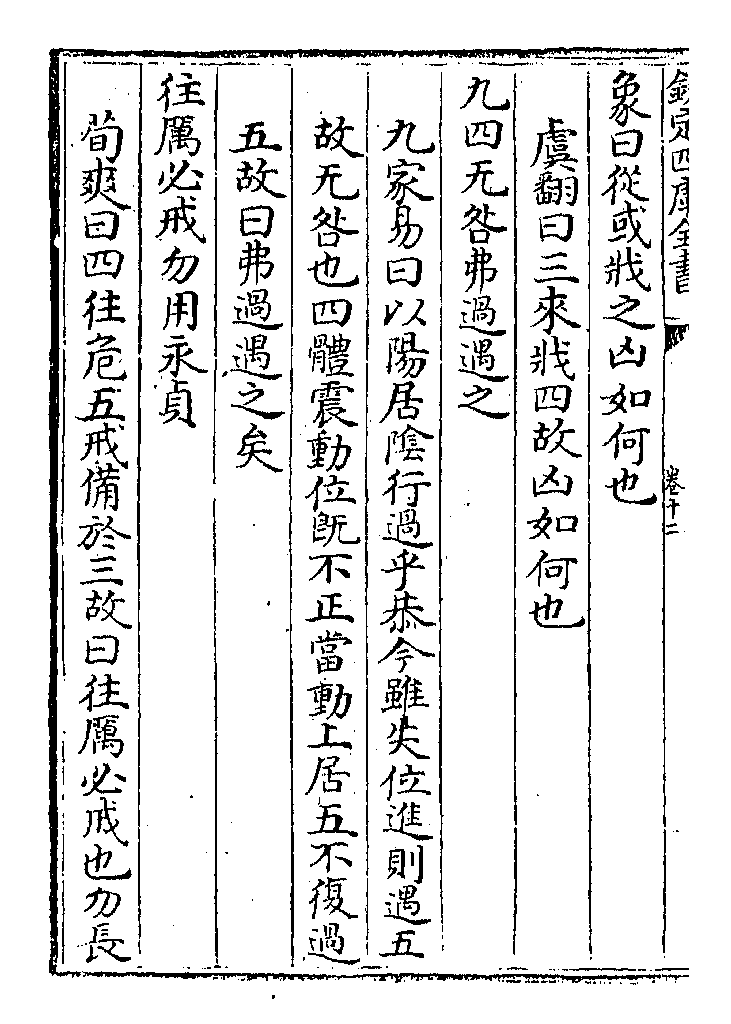 欽定四庫全書
卷十二
象曰從或戕之凶如何也
虞翻曰三來戕四故凶如何也
九四无咎弗過遇之
九家易曰以陽居陰行過乎恭今雖失位進則遇五
故无咎也四體震動位既不正當動上居五不復過
五故曰弗過遇之矣
往厲必戒勿用永貞
荀爽曰四往危五戒備於三故曰往厲必戒也勿長